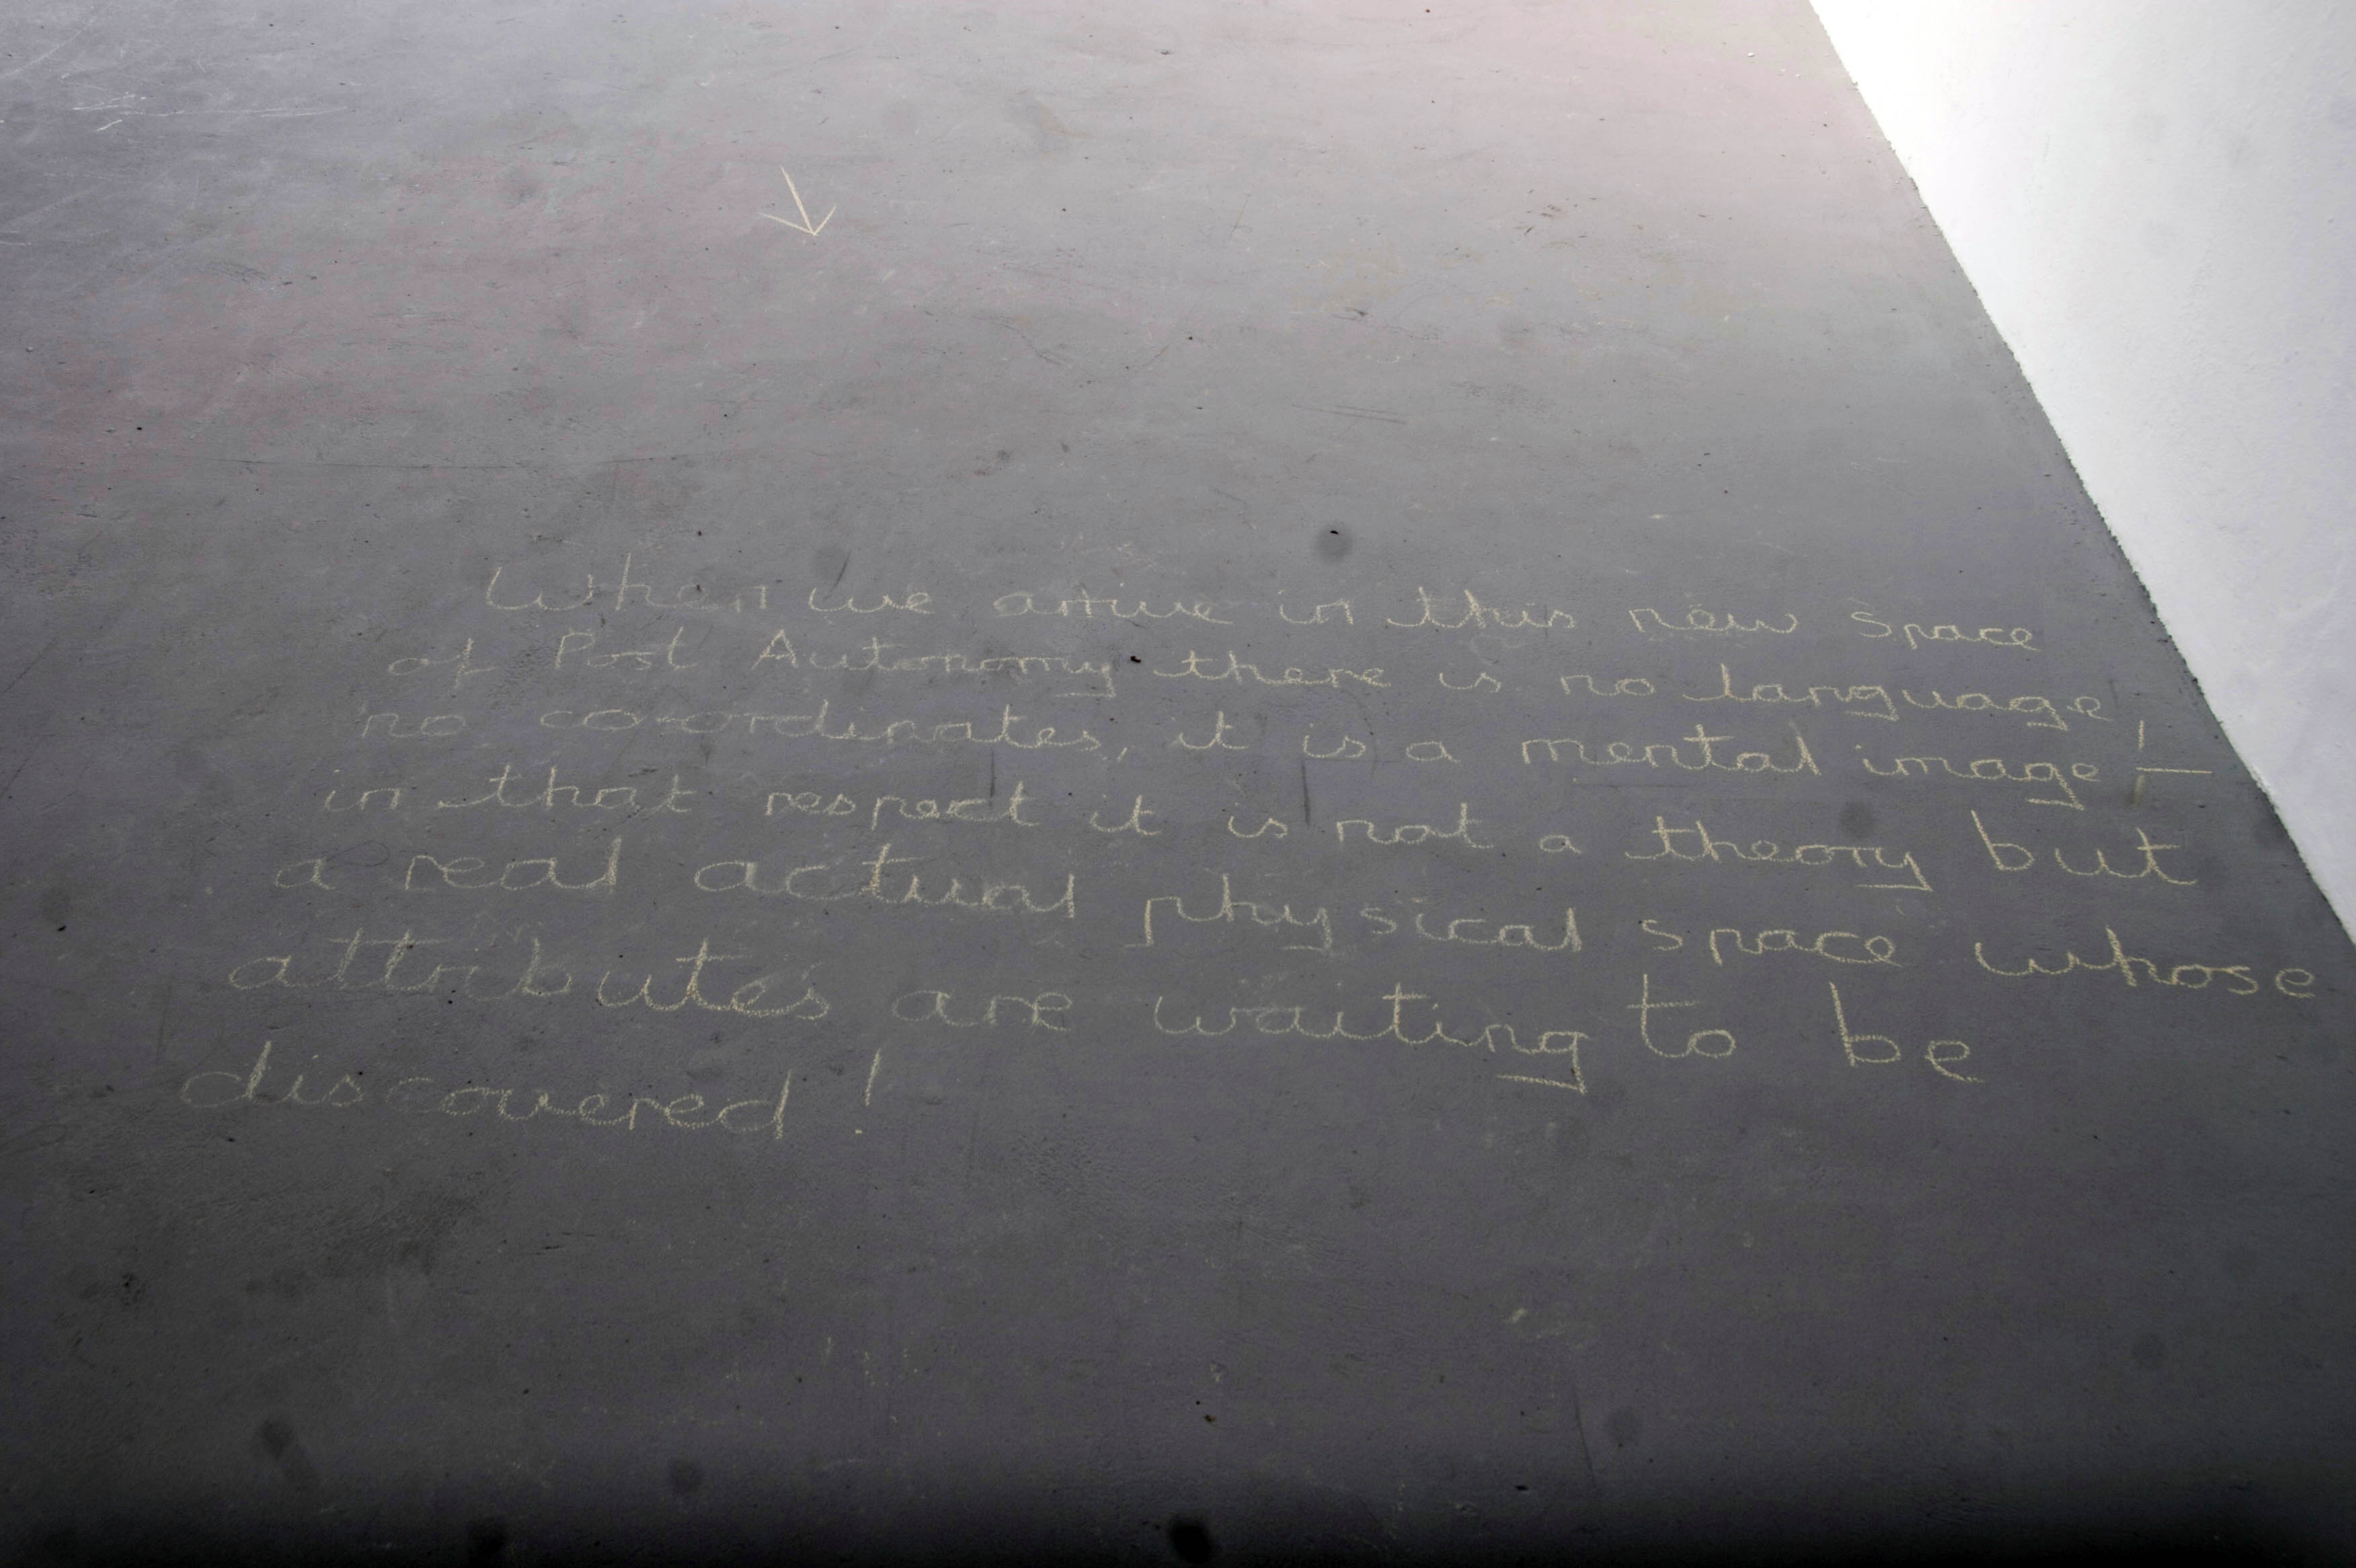 When we arrive in this new space
of Post Autonomy there is no language,
no co-ordinates, it is a mental image! —
in that respect it is not a theory but
a real actual physical space whose
attributes are waiting to be
discovered!